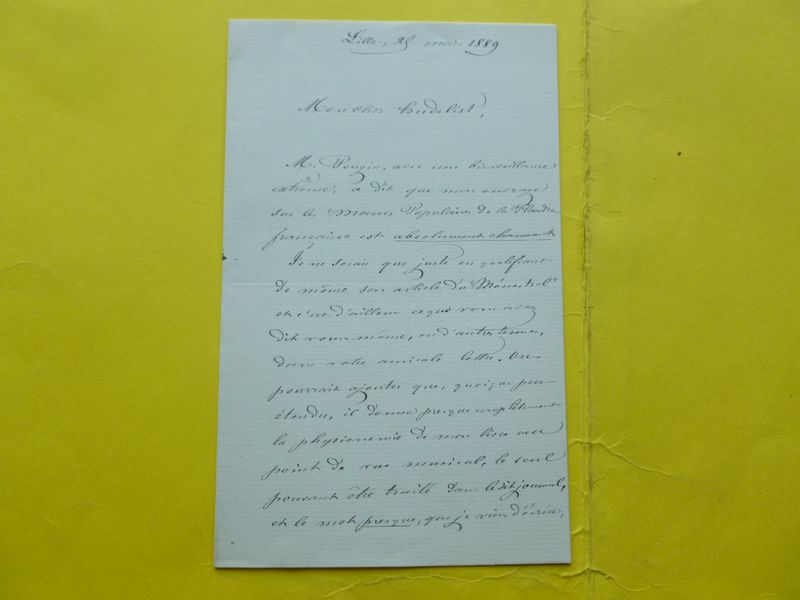 Lille, 25 mars 1889
Mon cher hudelist,
M. Pougin, avec une bienveillance
extrême, a dit que mon ouvrage
sur les "Moeurs Populaires de la Flandre
française" est absolument charmant.
Je ne serais que juste en qualifiant
de même son article du "Ménestrel"
et c'est d'ailleurs ce que vous avez
dit vous même, en d'autres termes,
dans votre amicale lettre. On
pourrait ajouter que, quoique peu
étendu, il donne presque complètement
la physionomie de mon livre au
point de vue musical, le seul
pouvant être traité dans le dit journal,
et le mot presque, que je viens d'écrire,